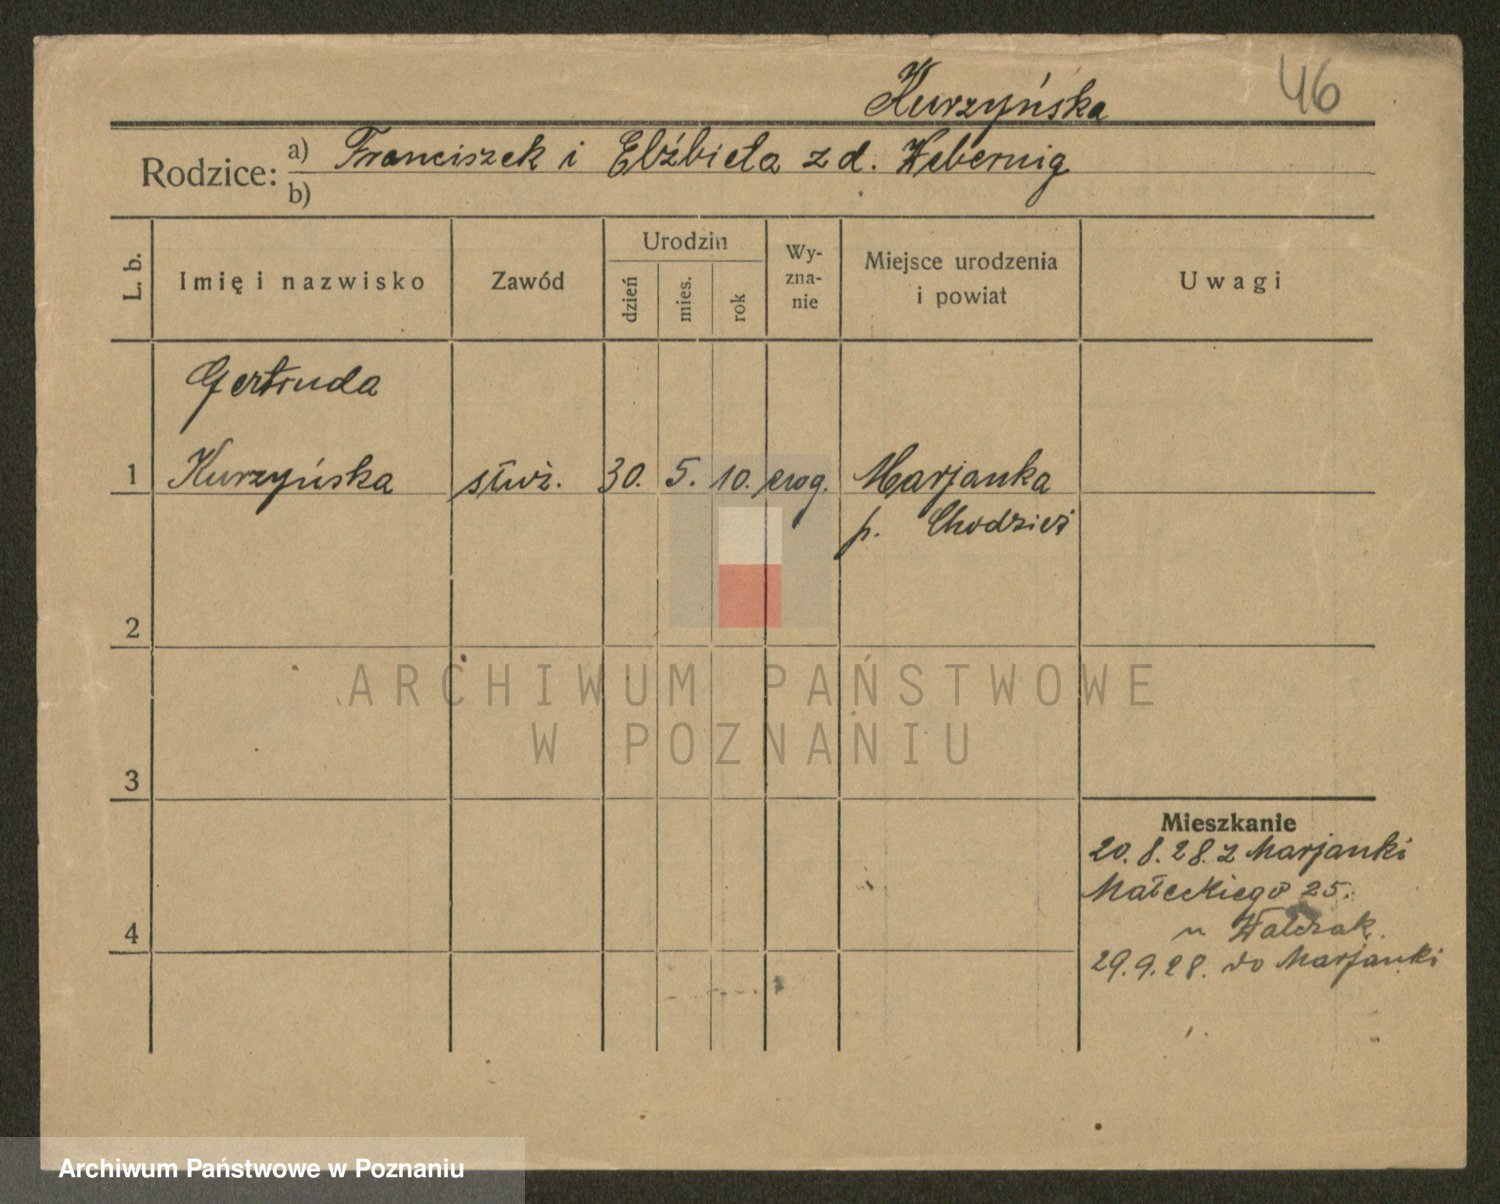 46
Kurzyńska
Rodzice:
a) Franciszek i Elżbieta z d. Webernig
b)
L. b.
Imię i nazwisko
Zawód
Urodzin
dzień
mies.
rok
Wy-
zna-
nie
Miejsce urodzenia
i powiat
Uwagi
Gertruda
1 Kurzyńska służ. 30. 5. 10. ewg. Marjanka
p. Chodzież
2
3
4
Mieszkanie
20.8.28. z Marjanki
Małeckiego 25.
u Walczak.
29.9.28. do Marjanki
ARCHIWUM PAŃSTWOWE
W POZNANIU
Archiwum Państwowe w Poznaniu